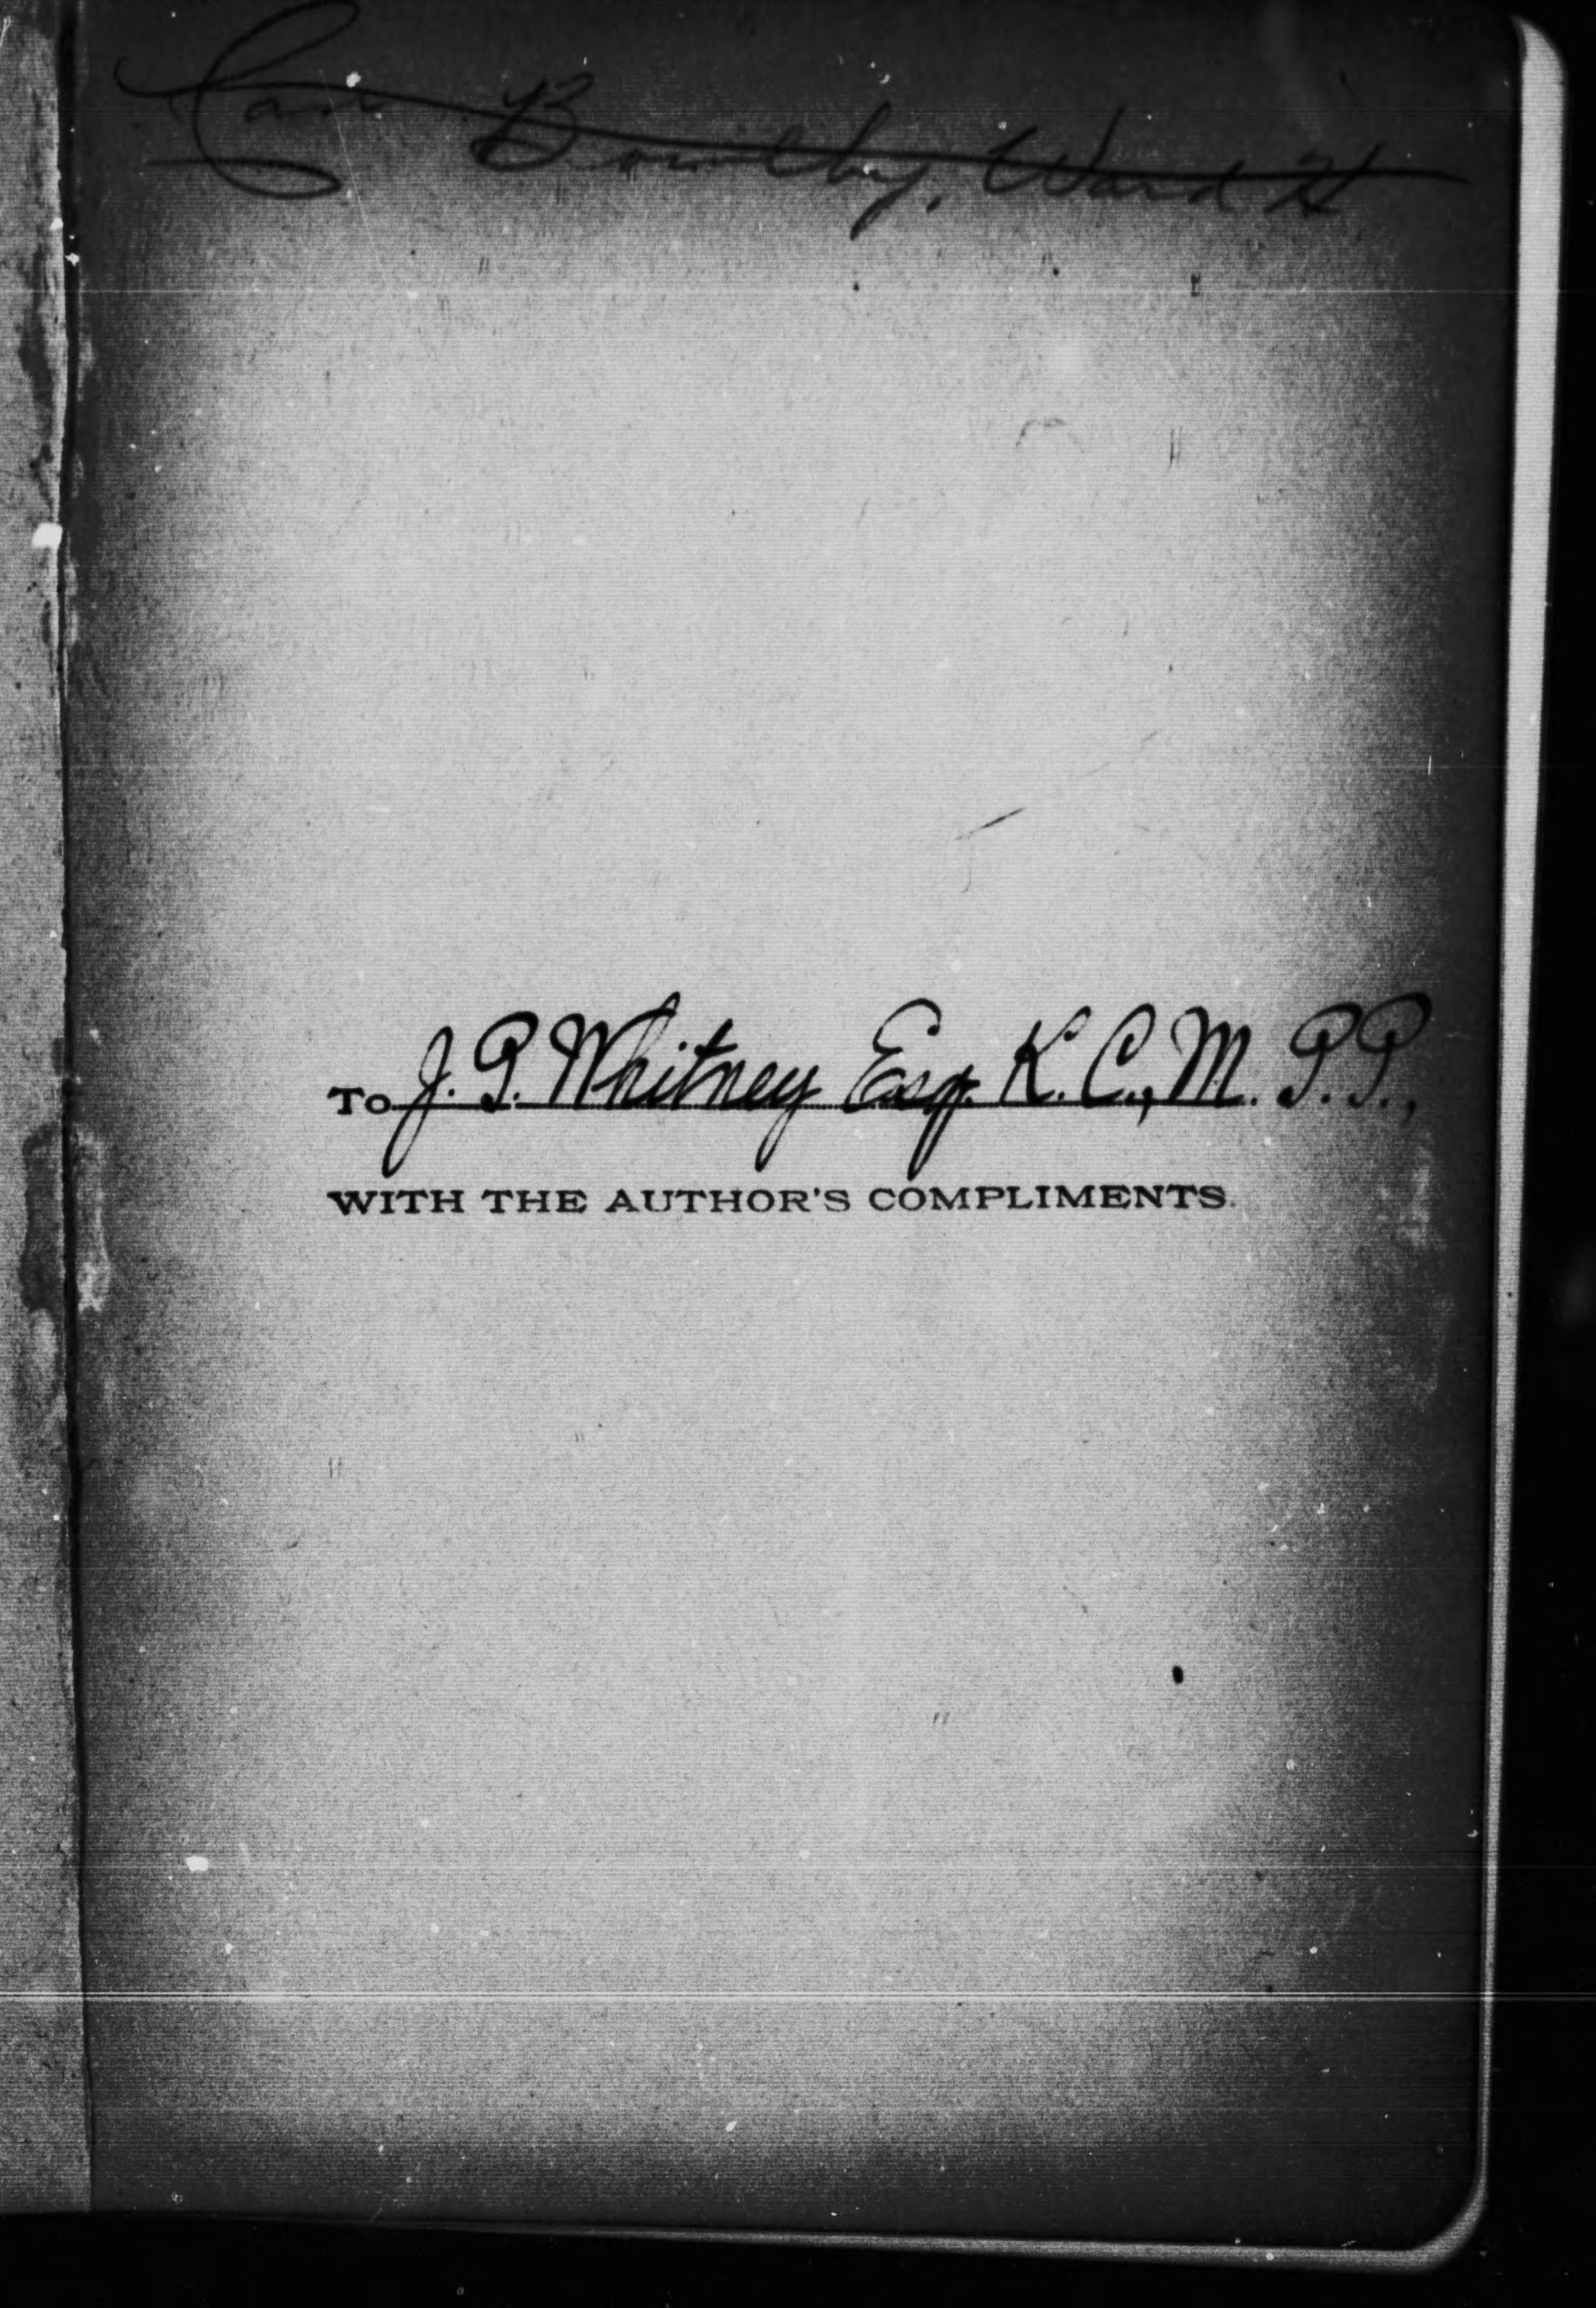 Bowlby, Ward H
To J. P. Whitney Esq. K. C., M. P. P.,
WITH THE AUTHOR'S COMPLIMENTS.